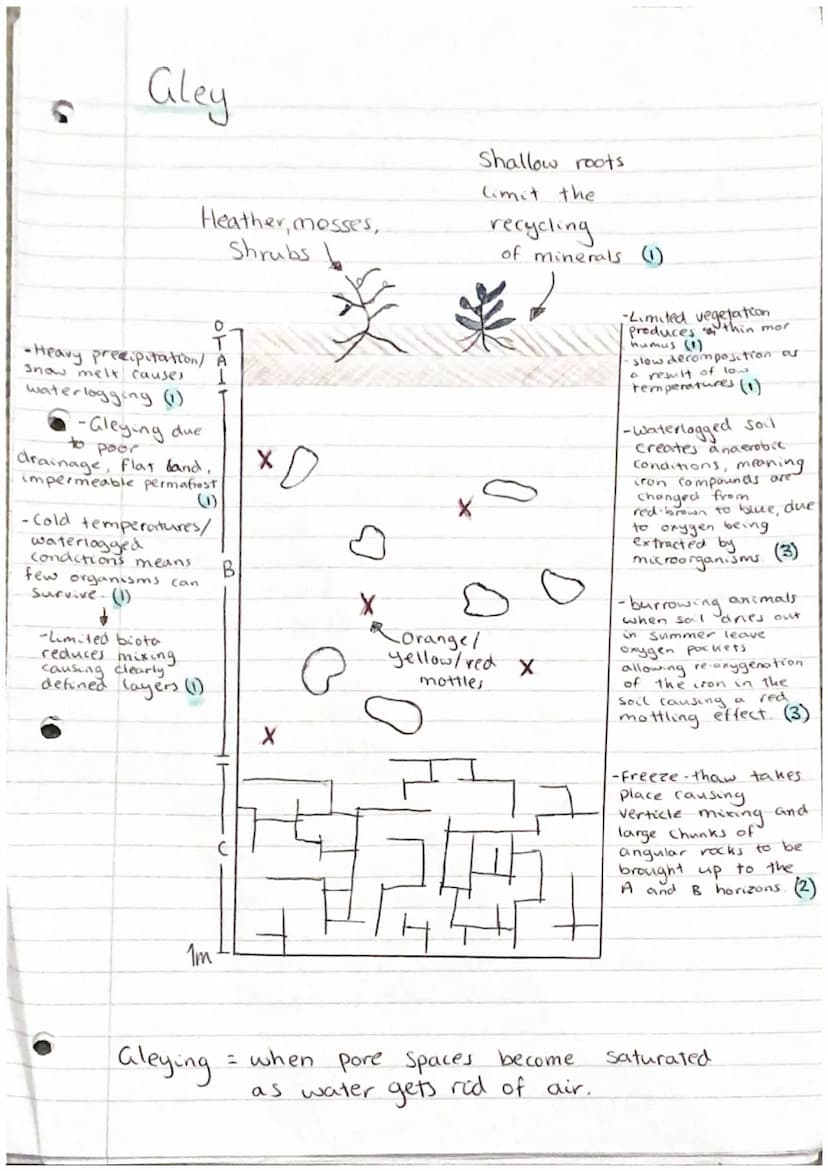 Gley
Shallow roots
limit the
recycling
of minerals (1)
Heather, mosses,
Shrubs
O
A
B
C
1m
-Heavy precipitation/
snow melt causes
waterlogging (1)
-Gleying due
to poor
drainage, flat land,
impermeable permafrost
(1)
-Cold temperatures/
waterlogged
conditions means
few organisms can
survive. (1)
-Limited biota
reduces mixing
causing clearly
defined layers (1)
x
x
x
Orange/
yellow/red
mottles
x
x
-Limited vegetation
produces thin mor
humus (1)
-slow decomposition as
a result of low
temperatures (1)
-Waterlogged soil
creates anaerobic
conditions, meaning
iron compounds are
changed from
red-brown to blue, due
to oxygen being
extracted by
microorganisms (3)
-burrowing animals
when soil dries out
in summer leave
oxygen pockets
allowing re-oxygenation
of the iron in the
soil causing a red
mottling effect. (3)
-Freeze-thaw takes
place causing
verticle mixing and
large chunks of
angular rocks to be
brought up to the
A and B horizons. (2)
Gleying = when pore spaces become saturated
as water gets rid of air.